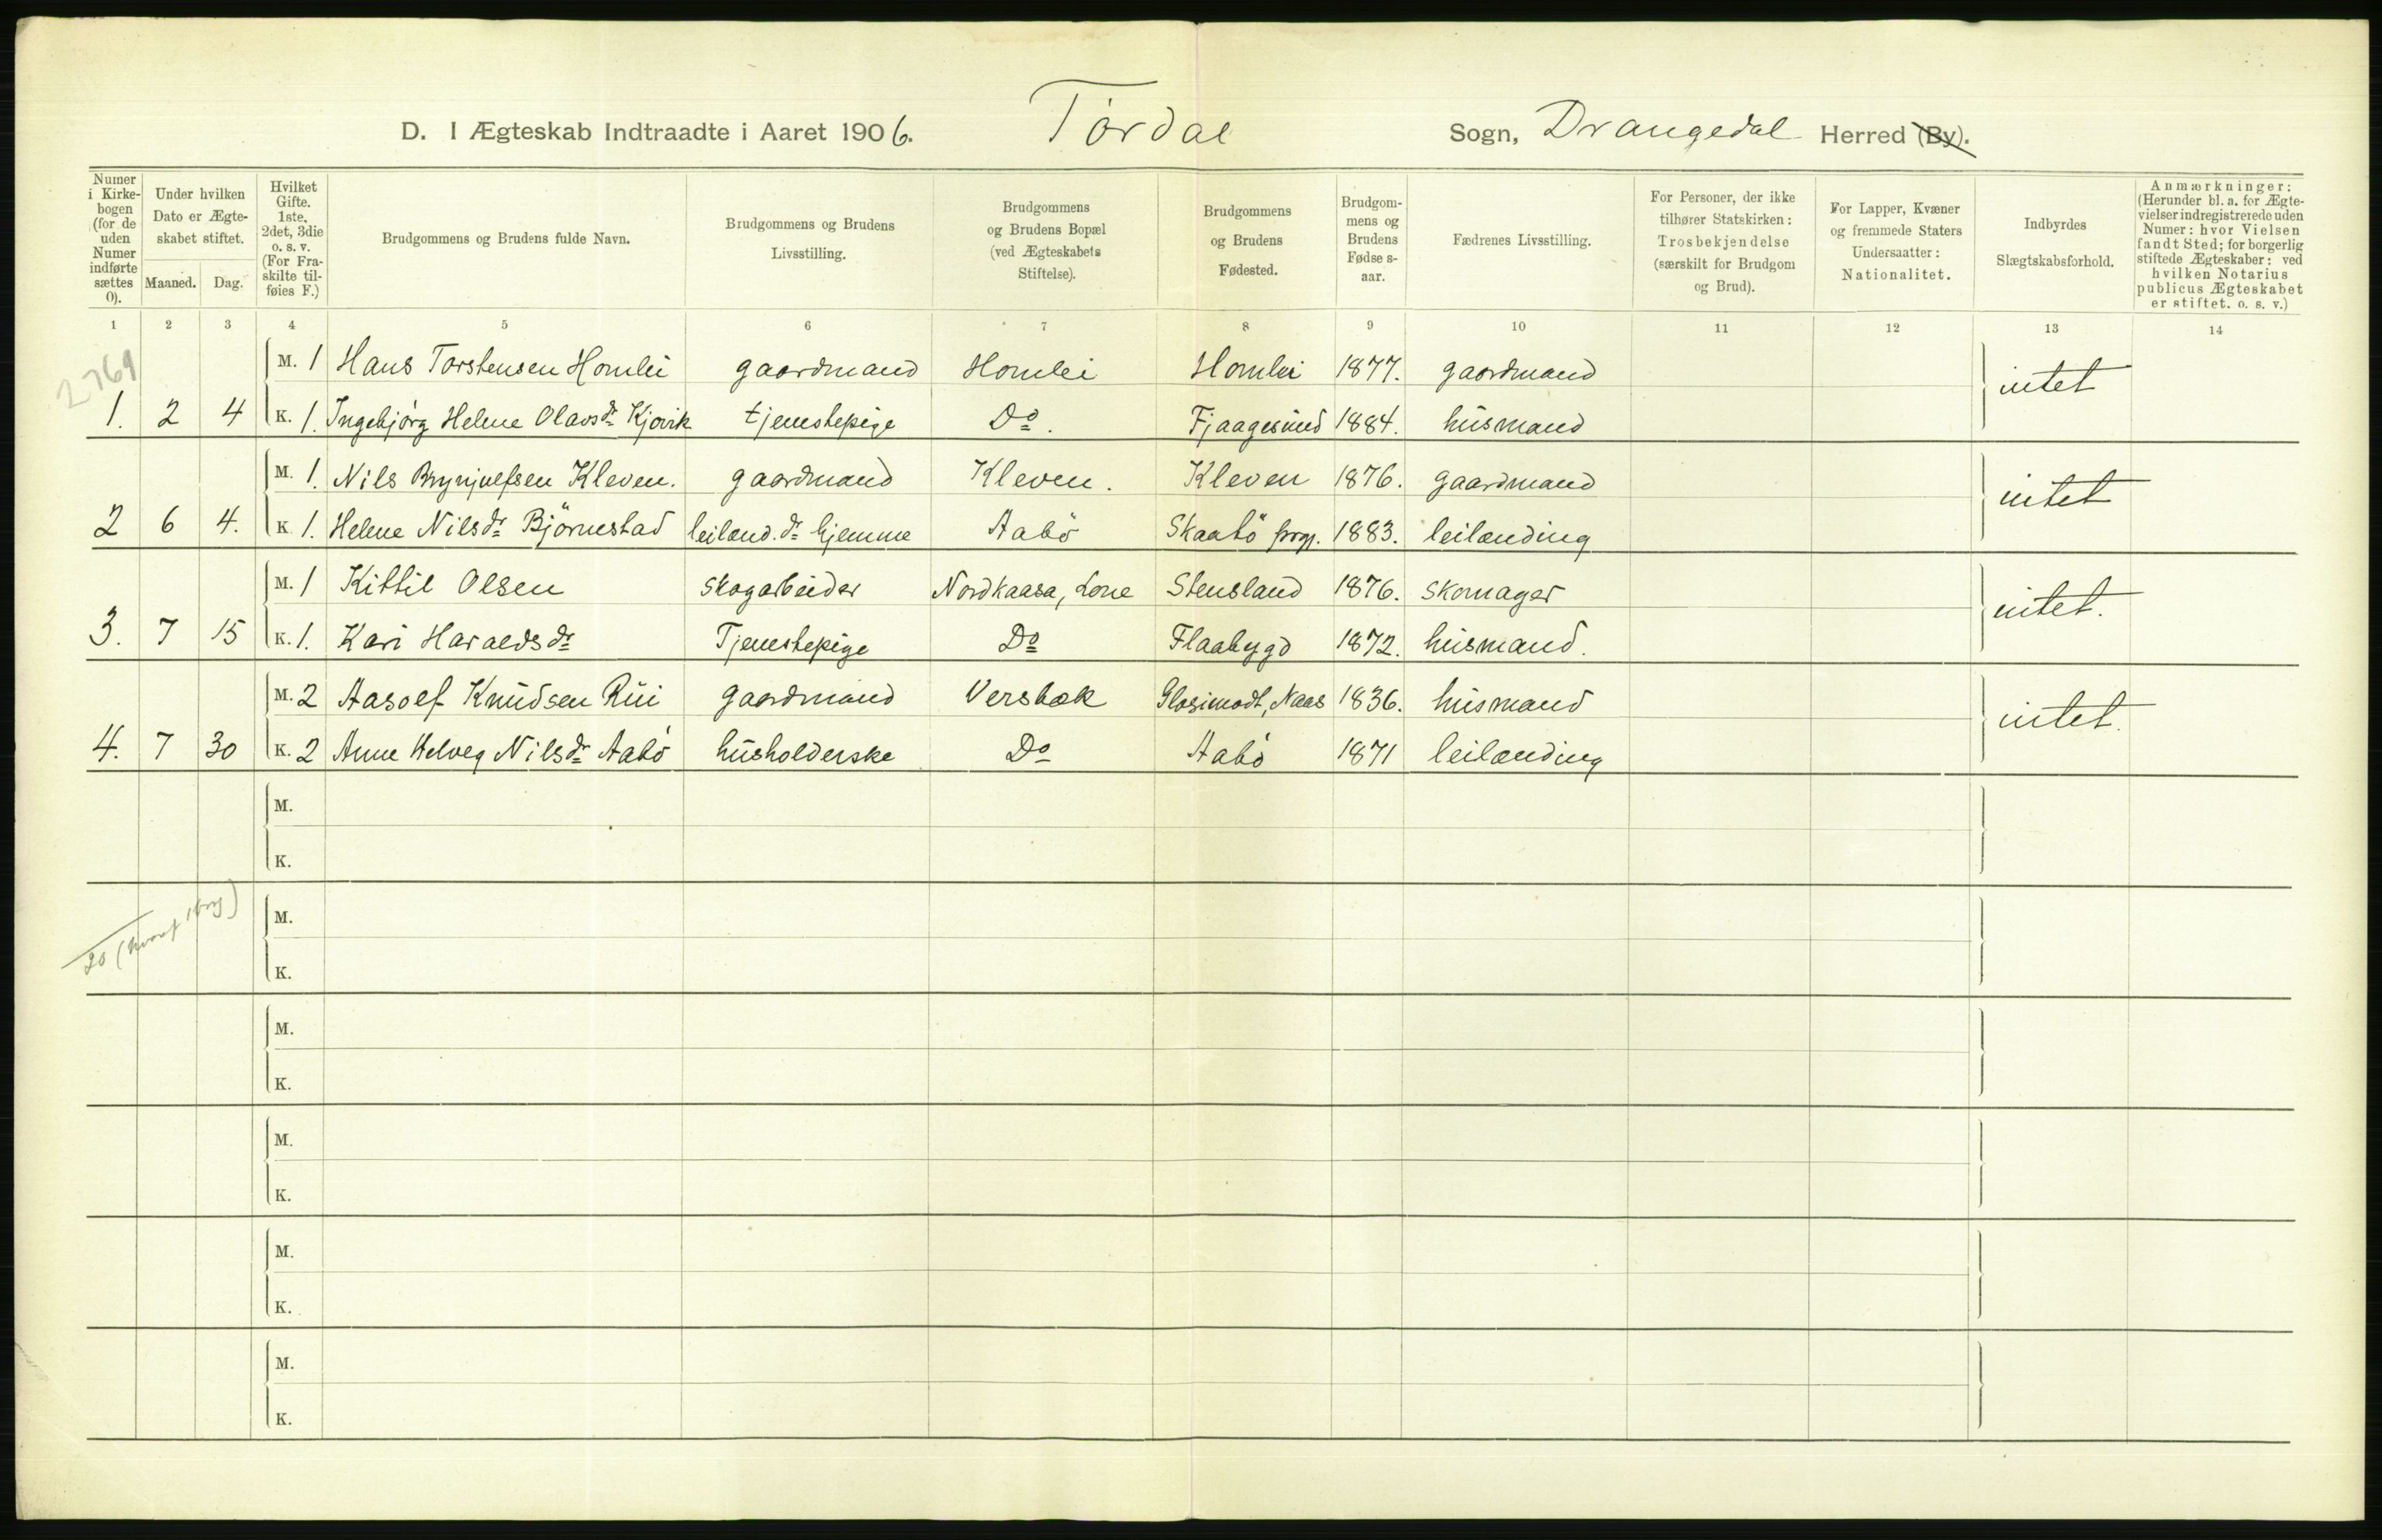 D. I Ægteskab Indtraadte i Aaret 1906. Tørdal Sogn, Drangedal Herred (By).
Numer i Kirkebogen (for de uden Numer indførte sættes 0).
Under hvilken Dato er Ægteskabet stiftet.
Maaned. Dag.
Hvilket Gifte. 1ste, 2det, 3die o. s. v. (For Fraskilte tilføies F.)
Brudgommens og Brudens fulde Navn.
Brudgommens og Brudens Livsstilling.
Brudgommens og Brudens Bopæl (ved Ægteskabets Stiftelse).
Brudgommens og Brudens Fødested.
Brudgommens og Brudens Fødse s-aar.
Fædrenes Livsstilling.
For Personer, der ikke tilhører Statskirken: Trosbekjendelse (særskilt for Brudgom og Brud).
For Lapper, Kvæner og fremmede Staters Undersaatter: Nationalitet.
Indbyrdes Slægtskabsforhold.
Anmærkninger: (Herunder bl. a. for Ægtevielser indregistrerede uden Numer: hvor Vielsen fandt Sted; for borgerlig stiftede Ægteskaber: ved hvilken Notarius publicus Ægteskabet er stiftet. o. s. v.)
1 2 3 4 5 6 7 8 9 10 11 12 13 14
2769
M. 1 Hans Torstensen Homlei gaardmand Homlei Homlei 1877. gaardmand intet
1. 2 4 K. 1. Ingebjørg Helene Olavsdr Kjørik tjenestepige Do. Fjaagesund 1884. husmand
M. 1. Nils Brynjulfsen Kleven. gaardmand Kleven. Kleven 1876. gaardmand intet
2 6 4. K 1. Helene Nilsdr Björnestad leilænd. dr hjemme Aabö Skaatö prgj. 1883. leilænding
M. 1 Kittil Olsen skogarbeider Nordkaasa, Lone Stensland 1876. skomager intet.
3. 7 15 K. 1. Kari Haraldsdr Tjenestepige Do Flaabygd 1872. husmand.
M. 2 Aasolf Knudsen Rui gaardmand Versbæk Glosimodt, Naas 1836. husmand intet.
4. 7 30 K. 2 Anne Helveg Nilsdr Aabö husholderske Do Aabö 1871 leilænding
M.
K.
20 (hvoraf
M.
K.
M.
K.
M.
K.
M.
K.
M.
K.